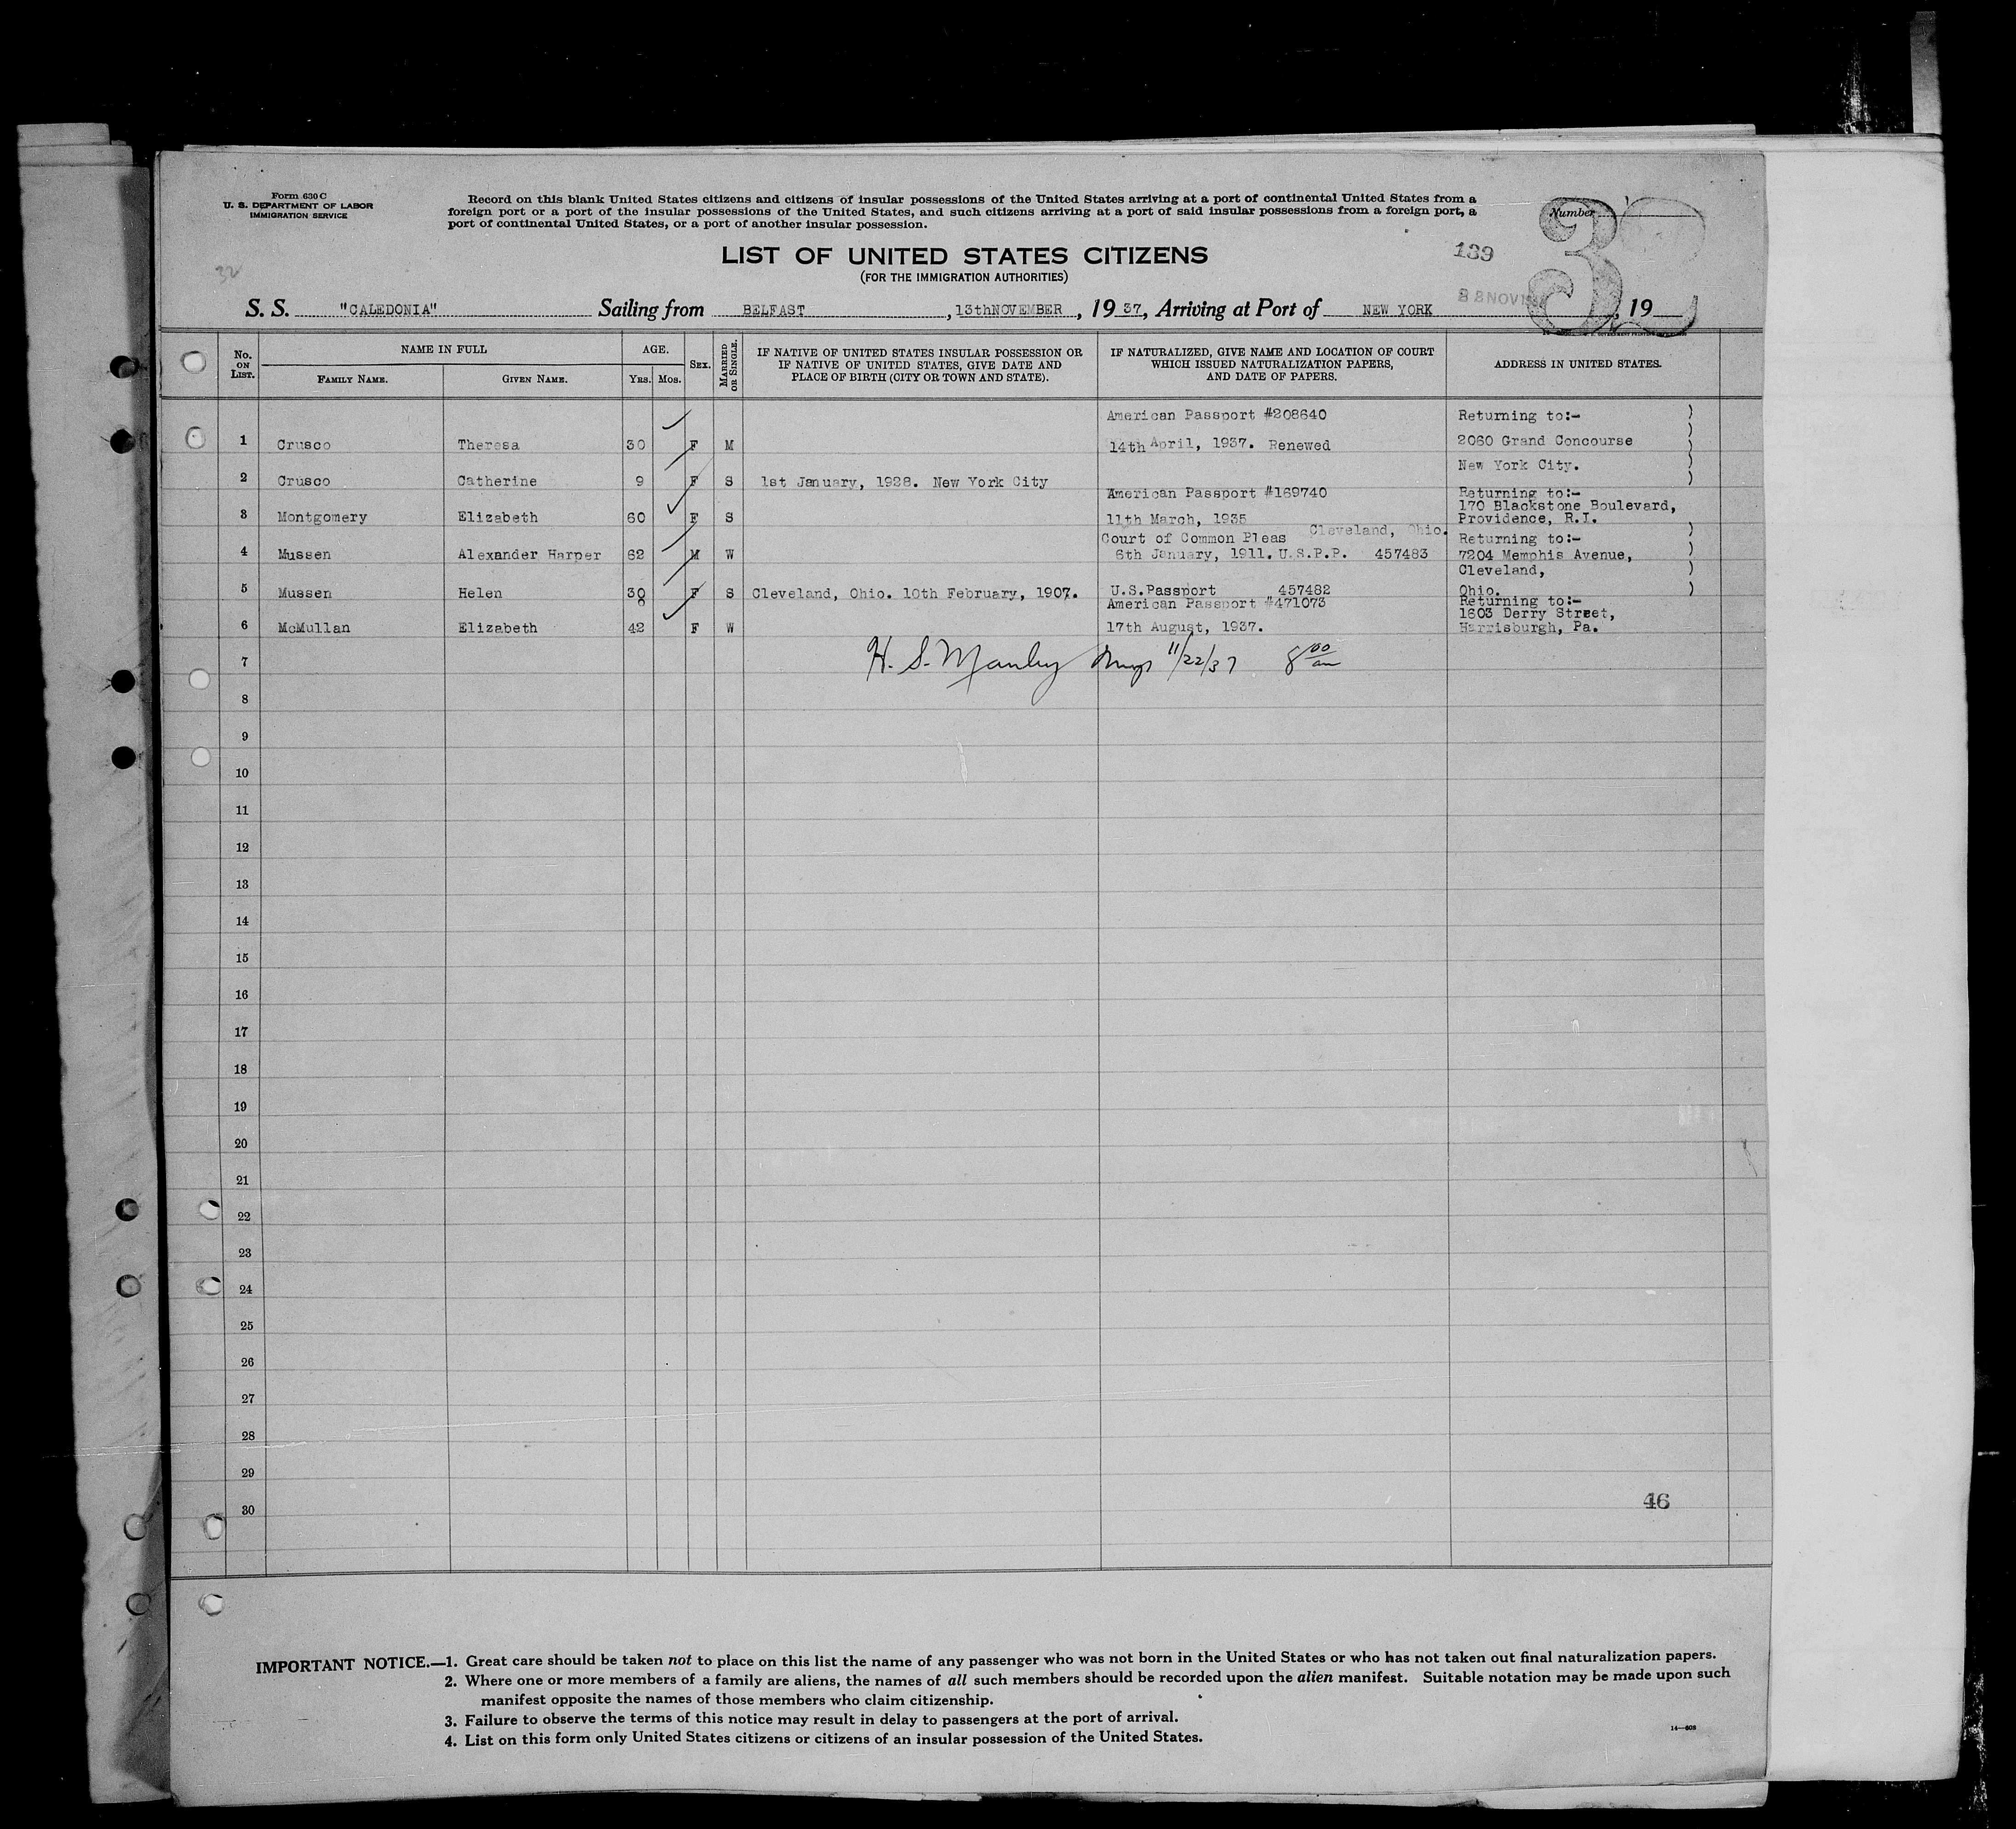 Form 630 C
U. S. DEPARTMENT OF LABOR
IMMIGRATION SERVICE
Record on this blank United States citizens and citizens of insular possessions of the United States arriving at a port of continental United States from a
foreign port or a port of the insular possessions of the United States, and such citizens arriving at a port of said insular possessions from a foreign port, a
port of continental United States, or a port of another insular possession.
Number
32
LIST OF UNITED STATES CITIZENS
(FOR THE IMMIGRATION AUTHORITIES)
139
32
S. S. "CALEDONIA" Sailing from BELFAST, 13thNOVEMBER, 19 37, Arriving at Port of NEW YORK, 19
No. ON LIST.
NAME IN FULL
FAMILY NAME.
GIVEN NAME.
AGE.
YRS. MOS.
SEX.
MARRIED OR SINGLE.
IF NATIVE OF UNITED STATES INSULAR POSSESSION OR
IF NATIVE OF UNITED STATES, GIVE DATE AND
PLACE OF BIRTH (CITY OR TOWN AND STATE).
IF NATURALIZED, GIVE NAME AND LOCATION OF COURT
WHICH ISSUED NATURALIZATION PAPERS,
AND DATE OF PAPERS.
ADDRESS IN UNITED STATES.
American Passport #208640 Returning to:-
1 Crusco Theresa 30 F M 14th April, 1937. Renewed 2060 Grand Concourse
New York City.
2 Crusco Catherine 9 F S 1st January, 1928. New York City
American Passport #169740 Returning to:-
170 Blackstone Boulevard,
3 Montgomery Elizabeth 60 F S 11th March, 1935 Providence, R.I.
Court of Common Pleas Cleveland, Ohio. Returning to:-
4 Mussen Alexander Harper 62 M W 6th January, 1911. U.S.P.P. 457483 7204 Memphis Avenue,
Cleveland,
5 Mussen Helen 30 F S Cleveland, Ohio. 10th February, 1907. U.S.Passport 457482 Ohio.
American Passport #471073 Returning to:-
1603 Derry Street,
6 McMullan Elizabeth 42 F W 17th August, 1937. Harrisburgh, Pa.
7 H. S. Manley 11/22/37 8 00 am
8
9
10
11
12
13
14
15
16
17
18
19
20
21
22
23
24
25
26
27
28
29
30
46
IMPORTANT NOTICE.—1. Great care should be taken not to place on this list the name of any passenger who was not born in the United States or who has not taken out final naturalization papers.
2. Where one or more members of a family are aliens, the names of all such members should be recorded upon the alien manifest. Suitable notation may be made upon such
manifest opposite the names of those members who claim citizenship.
3. Failure to observe the terms of this notice may result in delay to passengers at the port of arrival.
4. List on this form only United States citizens or citizens of an insular possession of the United States.
14—608